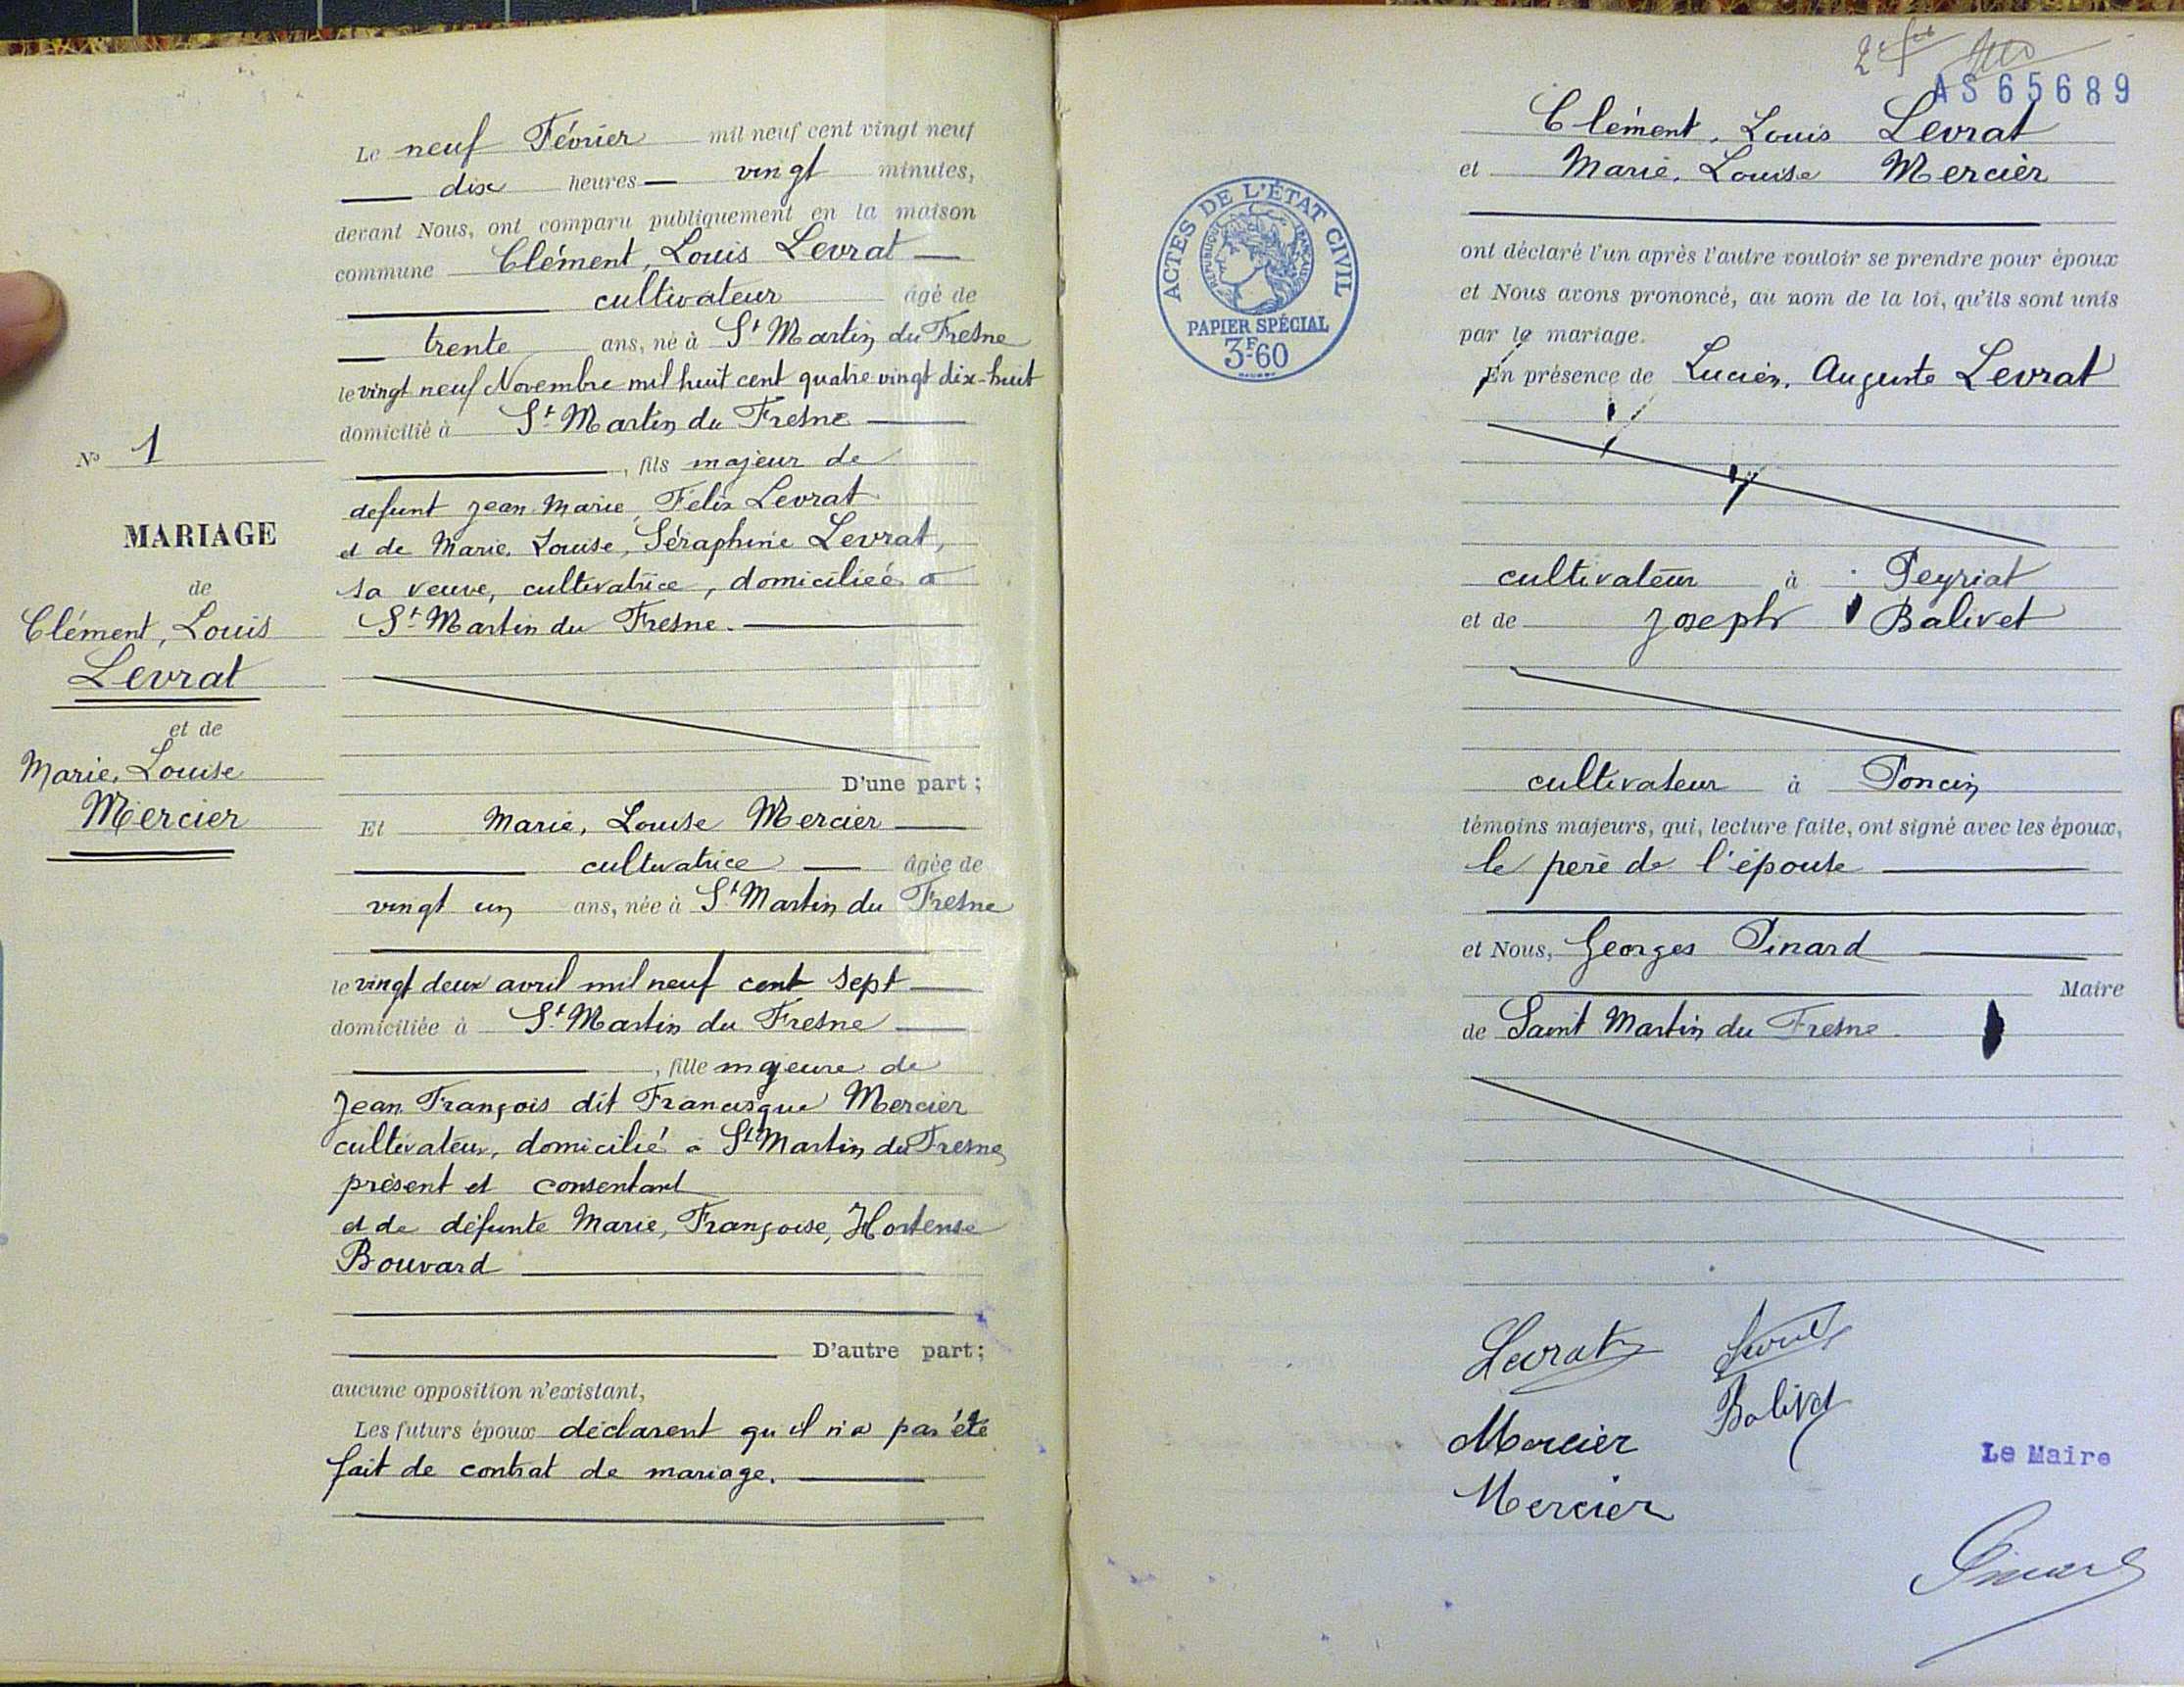 N° 1
MARIAGE
de
Clément, Louis
Levrat
et de
Marie, Louise
Mercier
Le neuf Février mil neuf cent vingt neuf
dix heures vingt minutes,
devant Nous, ont comparu publiquement en la maison
commune Clément, Louis Levrat
cultivateur âgé de
trente ans, né à St Martin du Fresne
le vingt neuf Novembre mil huit cent quatre vingt dix-huit
domicilié à St Martin du Fresne
, fils majeur de
defunt Jean Marie, Félix Levrat
et de Marie, Louise, Séraphine Levrat,
sa veuve, cultivatrice, domiciliée à
St Martin du Fresne.
D'une part ;
Et Marie, Louise Mercier
cultivatrice âgée de
vingt un ans, née à St Martin du Fresne
le vingt deux avril mil neuf cent sept
domiciliée à St Martin du Fresne
, fille majeure de
Jean François dit Francisque Mercier
cultivateur, domicilié à St Martin du Fresne
présent et consentant
et de défunte Marie, Françoise, Hortense
Bouvard
D'autre part ;
aucune opposition n'existant,
Les futurs époux déclarent qu'il n'a pas été
fait de contrat de mariage.
AS 65689
ACTES DE L'ÉTAT CIVIL
RÉPUBLIQUE FRANÇAISE
PAPIER SPÉCIAL
3F60
Clément, Louis Levrat
et Marie, Louise Mercier
ont déclaré l'un après l'autre vouloir se prendre pour époux
et Nous avons prononcé, au nom de la loi, qu'ils sont unis
par le mariage.
En présence de Lucien, Auguste Levrat
cultivateur à Peyriat
et de Joseph Balivet
cultivateur à Poncin
témoins majeurs, qui, lecture faite, ont signé avec les époux,
le père de l'épouse
et Nous, Georges Pinard
Maire
de Saint Martin du Fresne.
Levrat
Balivet
Mercier
Mercier
Le Maire
Pinard